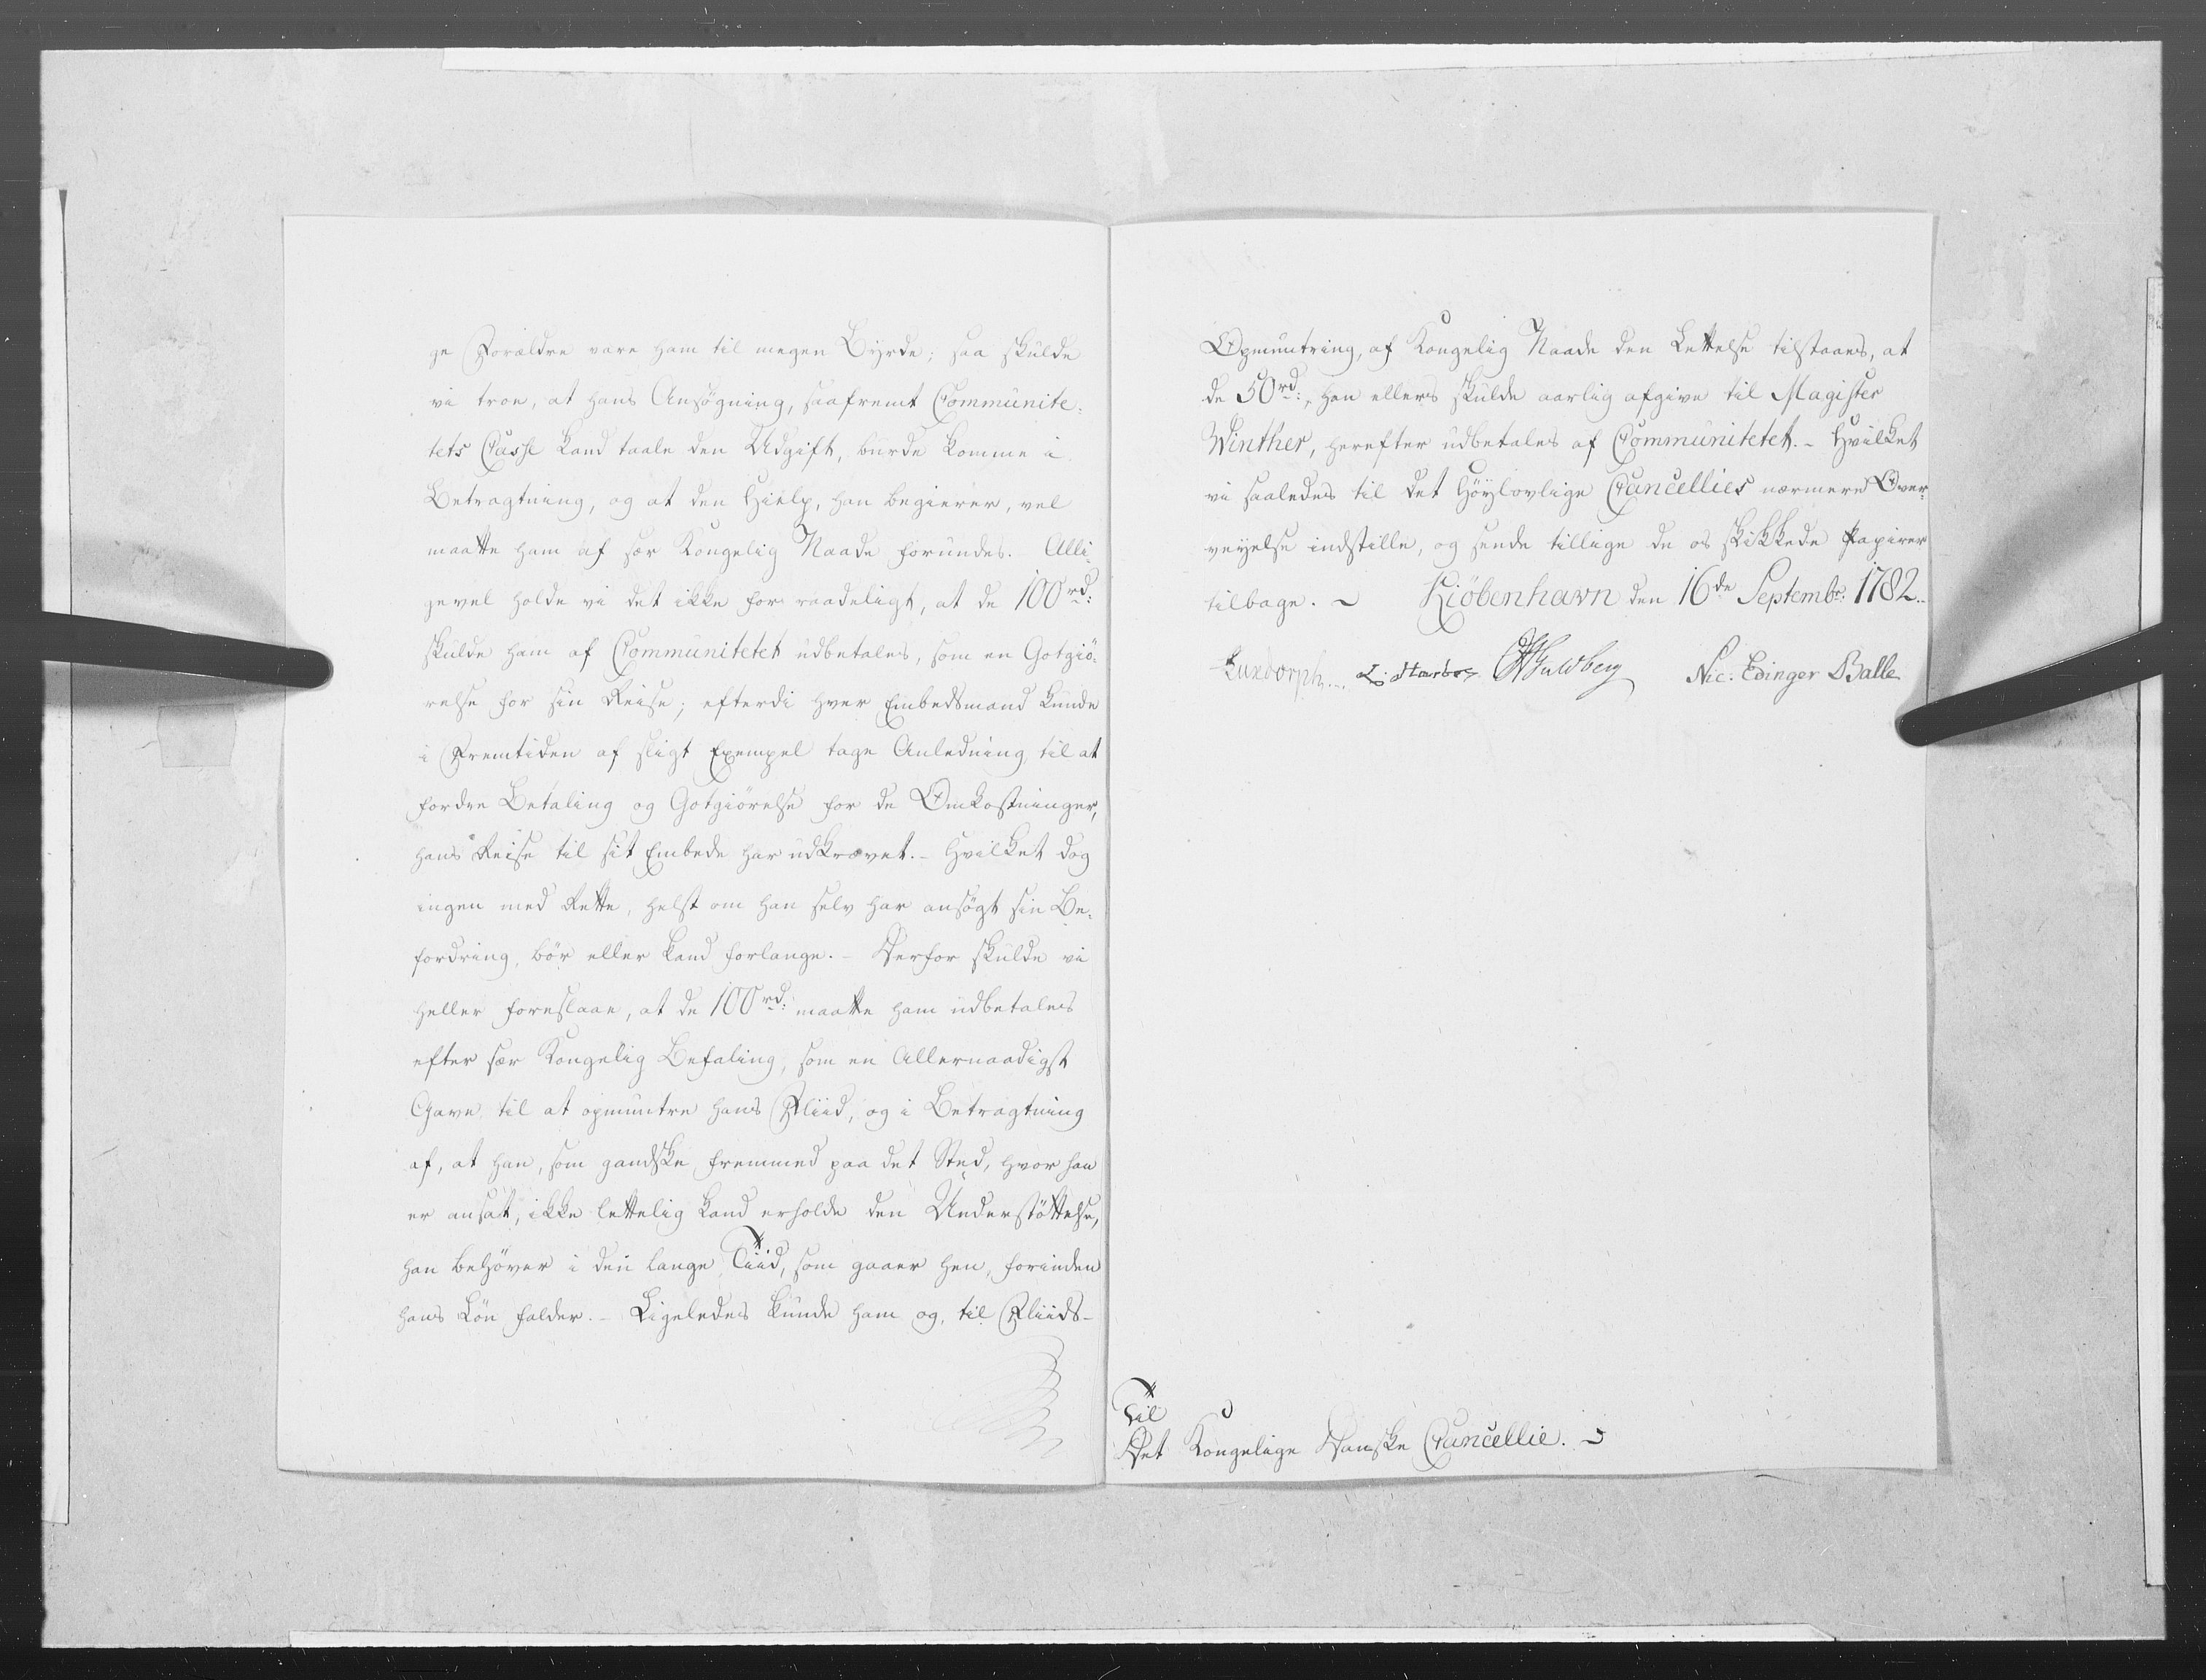 ge Forældre vare ham til megen Byrde; saa skulde
vi troe, at hans Ansøgning, saafremt Communite-
tets Casse kand taale den Udgift, burde komme i
Betragtning, og at den Hielp, han begierer, vel
maatte ham af sær Kongelig Naade forundes. Alli-
gevel holde vi det ikke for raadeligt, at de 100 rd:
skulde ham af Communitetet udbetales, som en Gotgiø-
relse for sin Reise; efterdi hver Embedsmand kunde
i Fremtiden af sligt Exempel tage Anledning til at
fordre Betaling og Gotgiørelse for de Omkostninger,
hans Reise til sit Embede har udkrævet. - Hvilket dog
ingen med Rette, helst om han selv har ansøgt sin Be-
fordring, bør eller kand forlange. - Derfor skulde vi
heller foreslaae, at de 100 rd: maatte ham udbetales
efter sær Kongelig Befaling, som en Allernaadigst
Gave til at opmuntre hans Fliid, og i Betragtning
af, at han, som gandske fremmed paa det Sted, hvor han
er ansat, ikke lettelig kand erholde den Understøttelse,
han behøver i den lange Tiid, som gaaer hen, forinden
hans Løn falder. - Ligeledes kunde ham og, til Fliids-
Opmuntring, af Kongelig Naade den Lettelse tilstaaes, at
de 50 rd:, han ellers skulde aarlig afgive til Magister
Winther, herefter udbetales af Communitetet. - Hvilket
vi saaledes til det Høylovlige Cancellies nærmere Over-
veyelse indstille, og sende tillige de os skikkede Papirer
tilbage. - Kiöbenhavn den 16de Septembr: 1782.
Luxdorph. L: Harboe OHGuldberg Nic: Edinger Balle
Til
Det Kongelige Danske Cancellie.